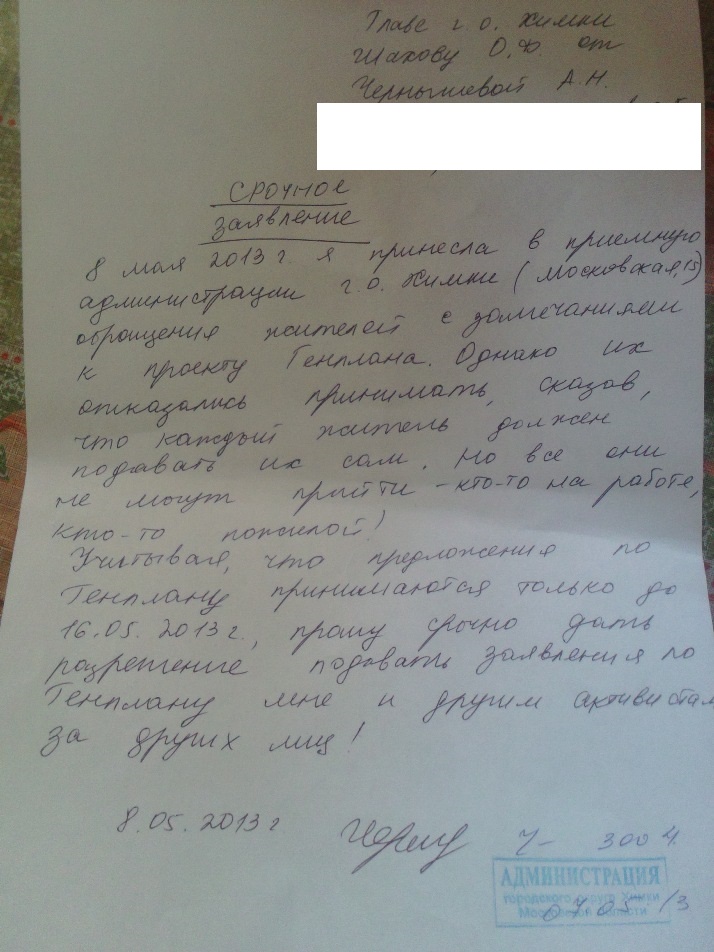 Главе г.о. Химки
Шахову О.Ф. от
Чернышевой А.Н.
СРОЧНОЕ
заявление
8 мая 2013 г. я принесла в приемную
администрации г.о. Химки (Московская, 15)
обращения жителей с замечаниями
к проекту Генплана. Однако их
отказались принимать, сказав,
что каждый житель должен
подавать их сам. Но все они
не могут прийти – кто-то на работе,
кто-то пожилой!
Учитывая, что предложения по
Генплану принимаются только до
16.05.2013 г., прошу срочно дать
разрешение подавать заявления по
Генплану мне и другим активистам
за других лиц!
8.05.2013 г
Ч- 3004
АДМИНИСТРАЦИЯ
городского округа Химки
Московской области